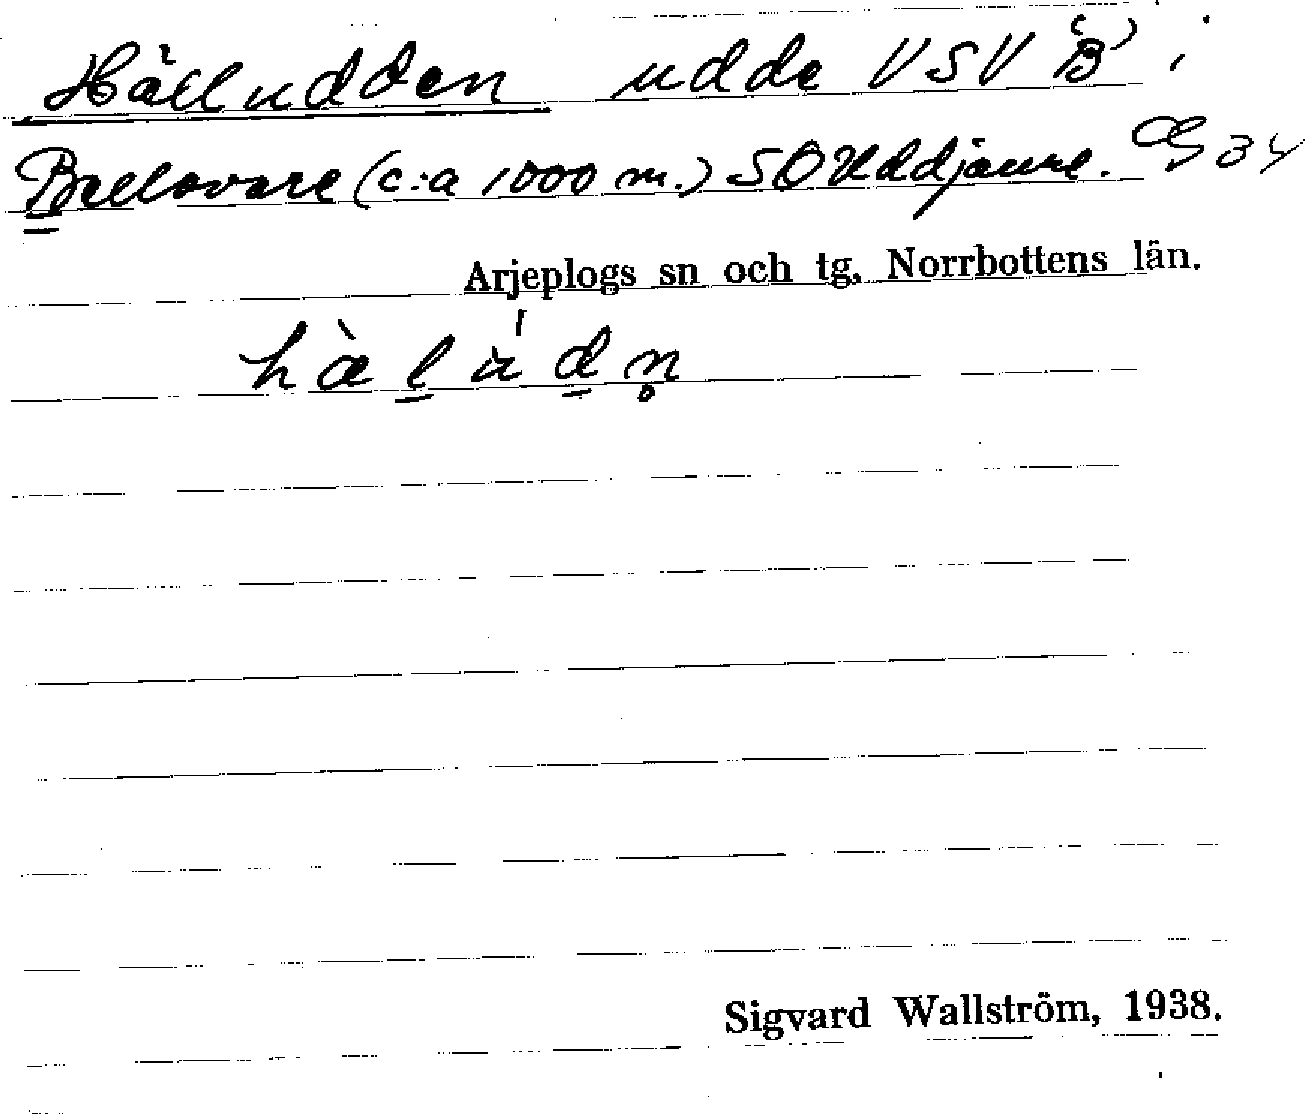 Hälludden udde VSV 'B' i
Bellovare (c:a 1000 m.) SO Uddjaure. 34
Arjeplogs sn och tg, Norrbottens län.
hæ̀lu̇́dn̥
Sigvard Wallström, 1938.